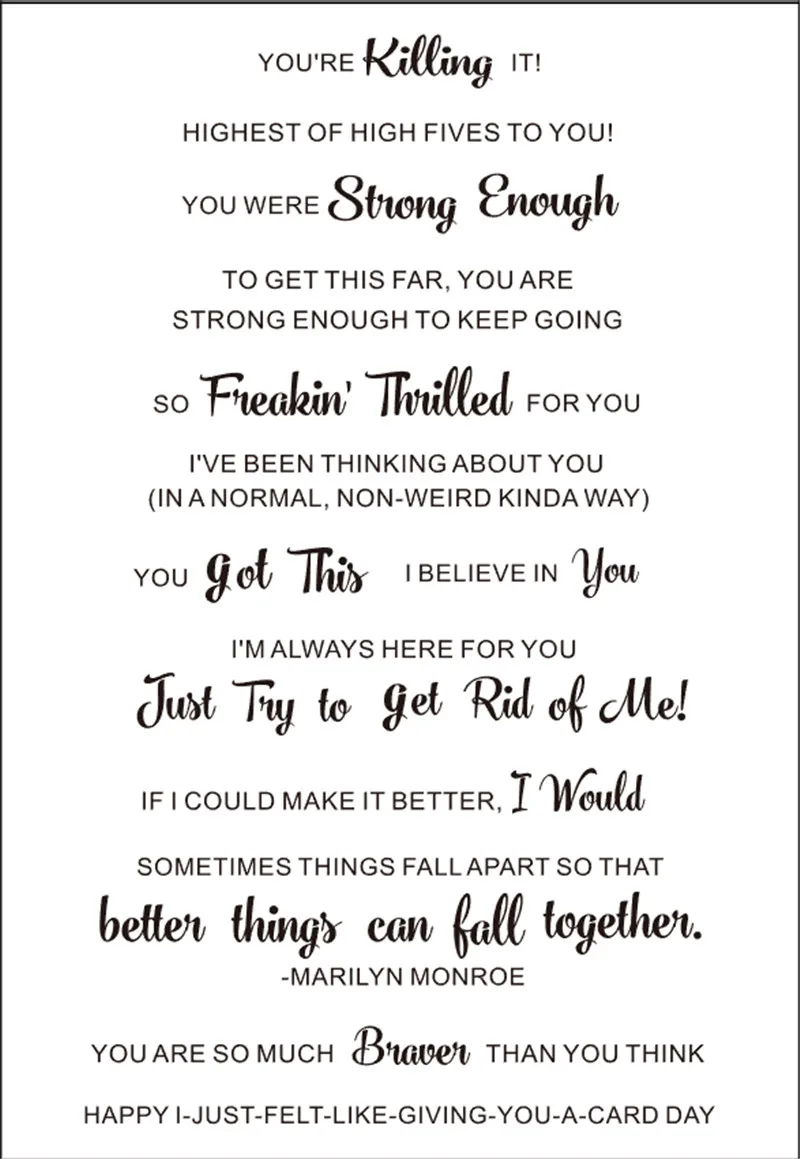 YOU'RE Killing IT!
HIGHEST OF HIGH FIVES TO YOU!
YOU WERE Strong Enough
TO GET THIS FAR, YOU ARE
STRONG ENOUGH TO KEEP GOING
SO Freakin' Thrilled FOR YOU
I'VE BEEN THINKING ABOUT YOU
(IN A NORMAL, NON-WEIRD KINDA WAY)
YOU Got This I BELIEVE IN You
I'M ALWAYS HERE FOR YOU
Just Try to Get Rid of Me!
IF I COULD MAKE IT BETTER, I Would
SOMETIMES THINGS FALL APART SO THAT
better things can fall together.
-MARILYN MONROE
YOU ARE SO MUCH Braver THAN YOU THINK
HAPPY I-JUST-FELT-LIKE-GIVING-YOU-A-CARD DAY